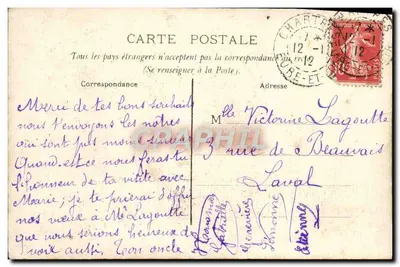 CARTE POSTALE
Tous les pays étrangers n'acceptent pas la correspondance au recto
(Se renseigner à la Poste).
Correspondance
Adresse
CHARTRES
12
EURE-ET-LOIR
Merci de tes bons souhaits
nous t'envoyons les nôtres
qui sont pas moins sincères
Quand est ce nous feras tu
l'honneur de ta visite avec
Marie; je te prierai d'offrir
nos vœux à Me Lagoutte
que nous serions heureux de
voir aussi. Ton oncle
Mlle Victorine Lagoutte
3 rue de Beauvais
Laval
Gabrielle
Geneviève
Simonne
Etienne